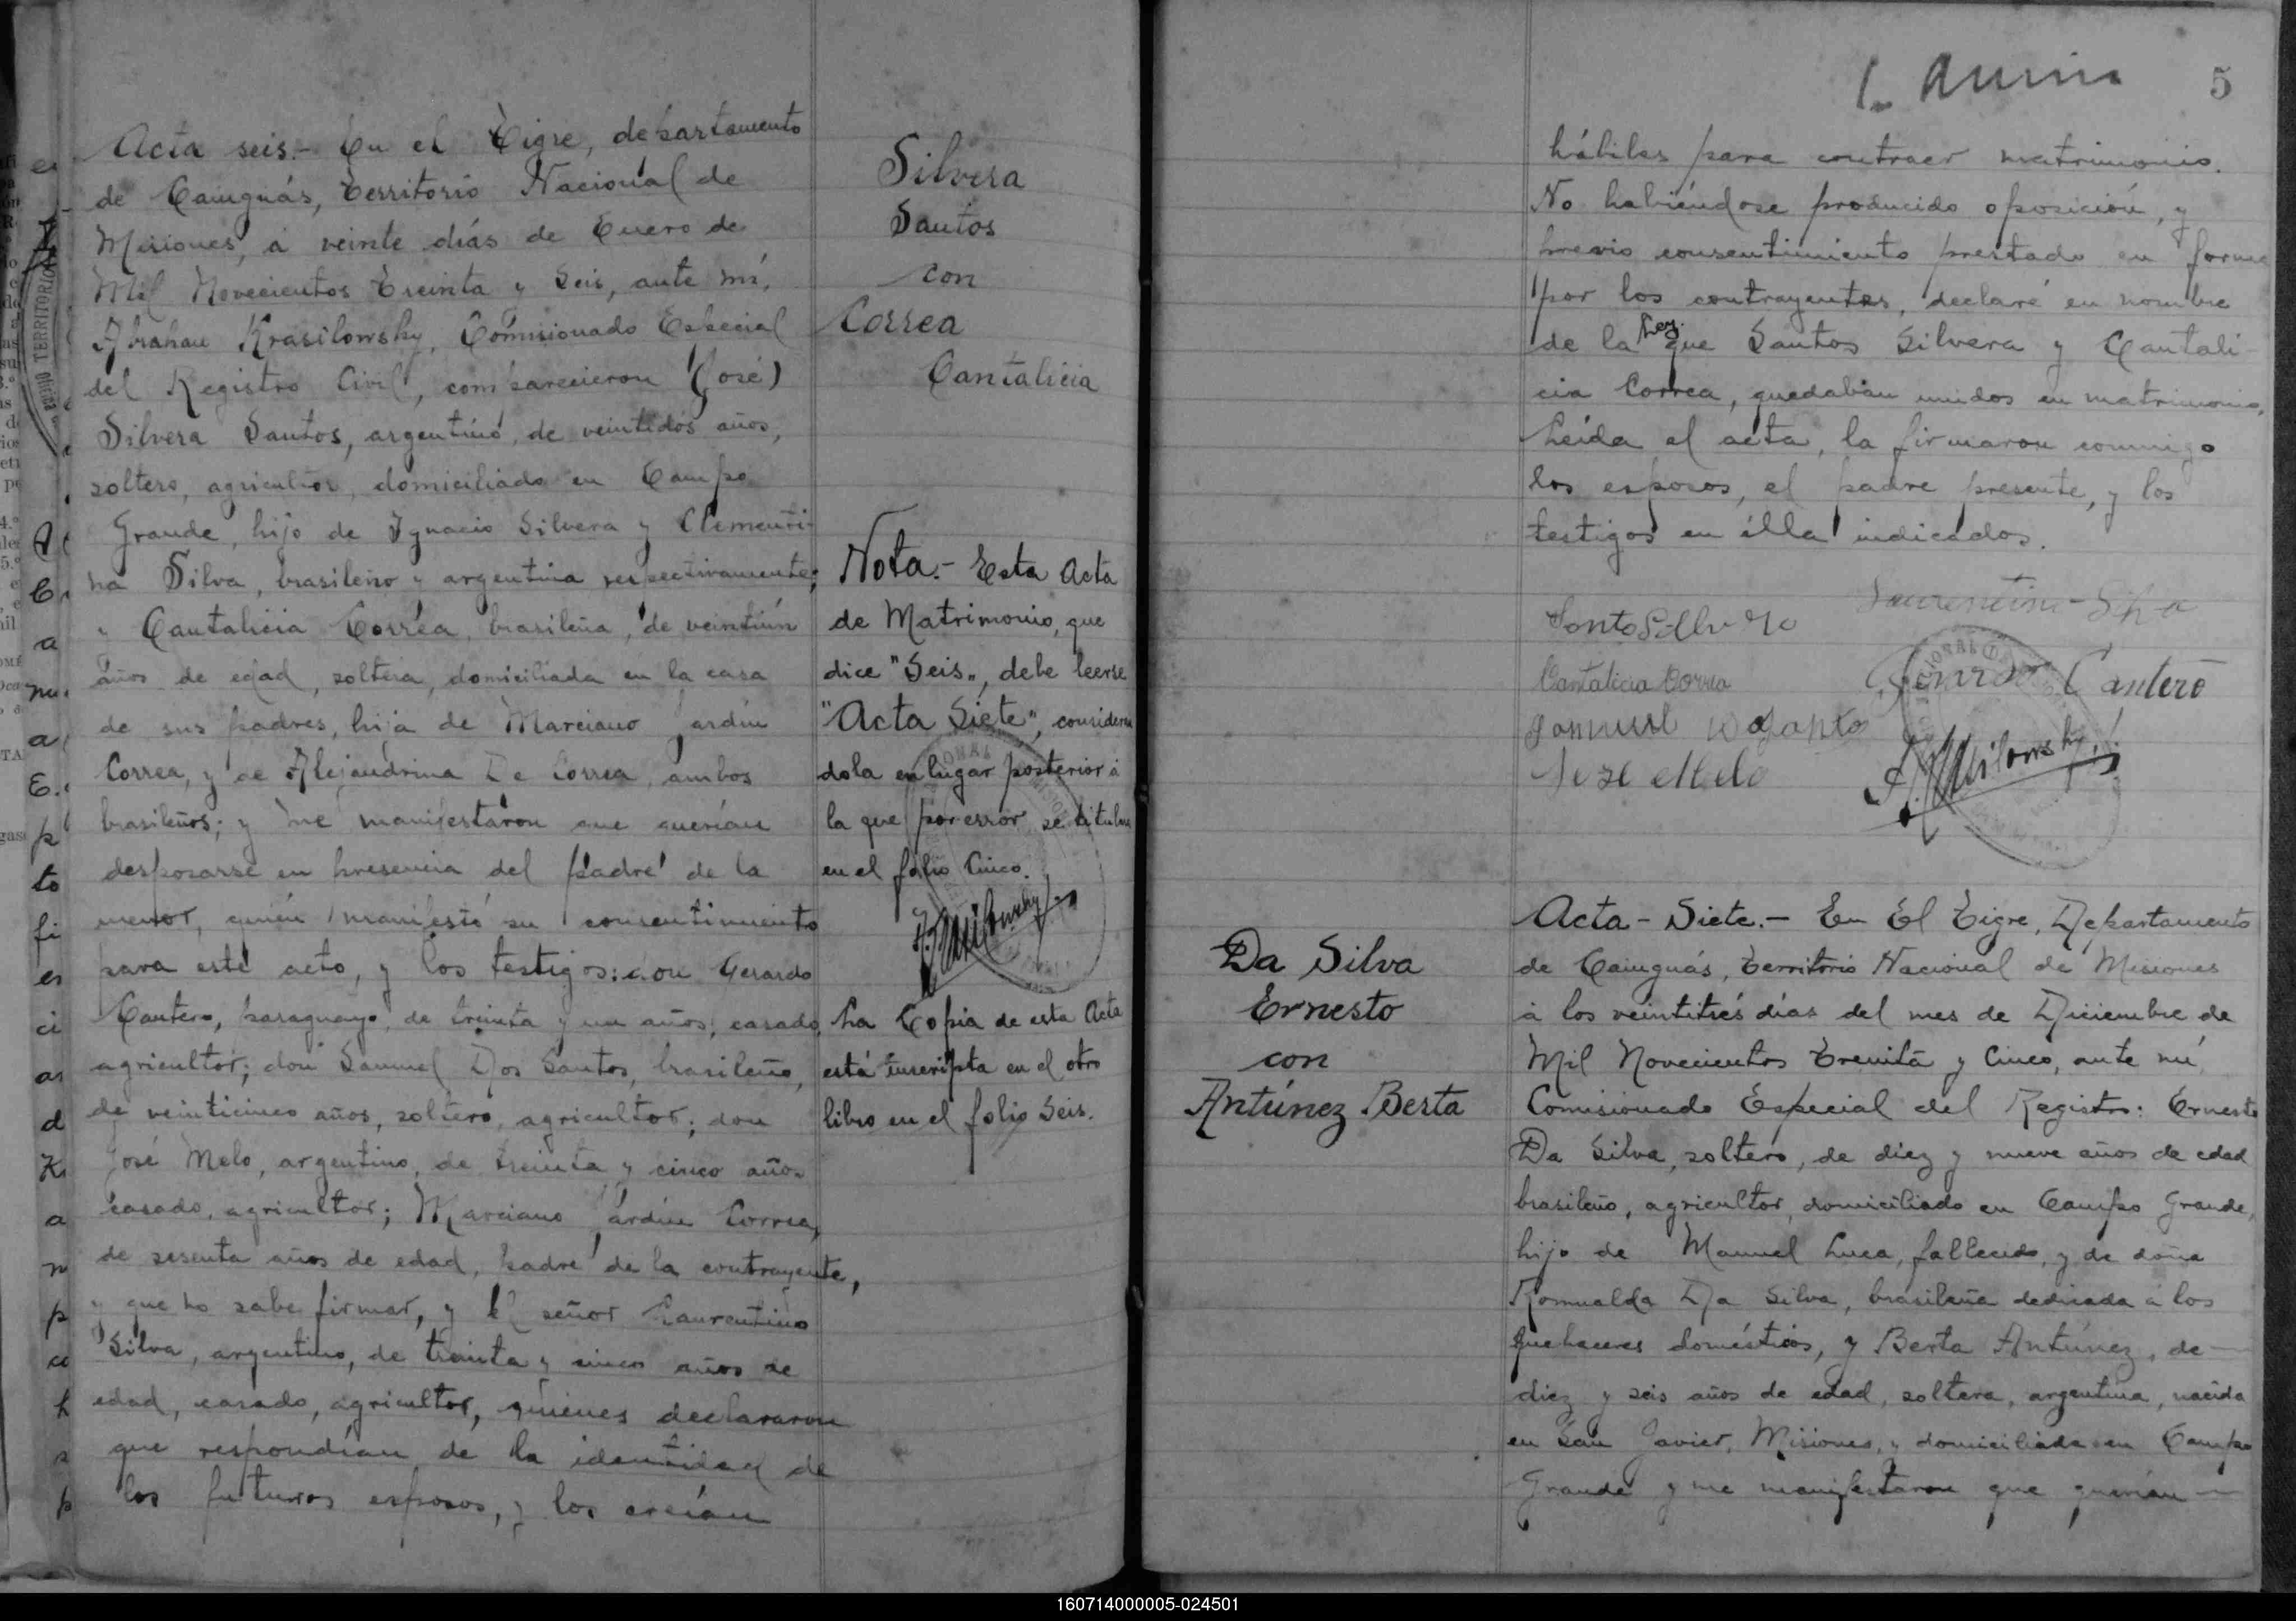 Acta seis.- En el Tigre, departamento
de Cainguás, Territorio Nacional de
Misiones, á veinte días de Enero de
Mil Novecientos Treinta y Seis, ante mí,
Abrahan Krasilowsky, Comisionado Especial
del Registro Civil, comparecieron (José)
Silvera Santos, argentino, de veintidós años,
soltero, agricultor, domiciliado en Campo
Grande, hijo de Ygnacio Silvera y Clementi-
na Silva, brasileño y argentina respectivamente;
y Cantalicia Correa, brasileña, de veintiún
años de edad, soltera, domiciliada en la casa
de sus padres, hija de Marciano Jardin
Correa, y de Alejandrina De Correa, ambos
brasileños; y me manifestaron que querían
desposarse en presencia del padre de la
menor, quién manifestó su consentimiento
para este acto, y los testigos: don Gerardo
Cantero, paraguayo, de treinta y un años, casado,
agricultor; don Samuel Dos Santos, brasileño,
de veinticinco años, soltero, agricultor; don
José Melo, argentino, de treinta y cinco años
casado, agricultor; Marciano Jardin Correa,
de sesenta años de edad, padre de la contrayente,
y que no sabe firmar, y el señor Laurentino
Silva, argentino, de treinta y cinco años de
edad, casado, agricultor, quiénes declararon
que respondían de la identidad de
los futuros esposos, y los creían
Silvera
Santos
con
Correa
Cantalicia
Nota.- Esta Acta
de Matrimonio, que
dice "Seis", debe leerse
"Acta Siete", considerán
dola en lugar posterior á
la que por error se titula
en el folio Cinco.
A. Krasilowsky
La Copia de esta Acta
está inscripta en el otro
libro en el folio Seis.
5
hábiles para contraer matrimonio.
No habiéndose producido oposición, y
previo consentimiento prestado en forma
por los contrayentes, declaré en nombre
de la Ley que Santos Silvera y Cantali-
cia Correa, quedaban unidos en matrimonio.
Leída el acta, la firmaron conmigo
los esposos, el padre presente, y los
testigos en élla indicados.
Laurentino Silva
Cantalicia Correa
Gerardo Cantero
Jose Melo
A. Krasilowsky
Da Silva
Ernesto
con
Antúnez Berta
Acta - Siete.- En El Tigre, Departamento
de Cainguás, Territorio Nacional de Misiones
á los veintitrés días del mes de Diciembre de
Mil Novecientos Treinta y Cinco, ante mí,
Comisionado Especial del Registro: Ernesto
Da Silva, soltero, de diez y nueve años de edad
brasileño, agricultor, domiciliado en Campo Grande,
hijo de Manuel Luca, fallecido, y de doña
Romualda Da Silva, brasileña dedicada á los
quehaceres domésticos, y Berta Antúnez, de
diez y seis años de edad, soltera, argentina, nacida
en San Javier, Misiones, y domiciliada en Campo
Grande y me manifestaron que querían
160714000005-024501